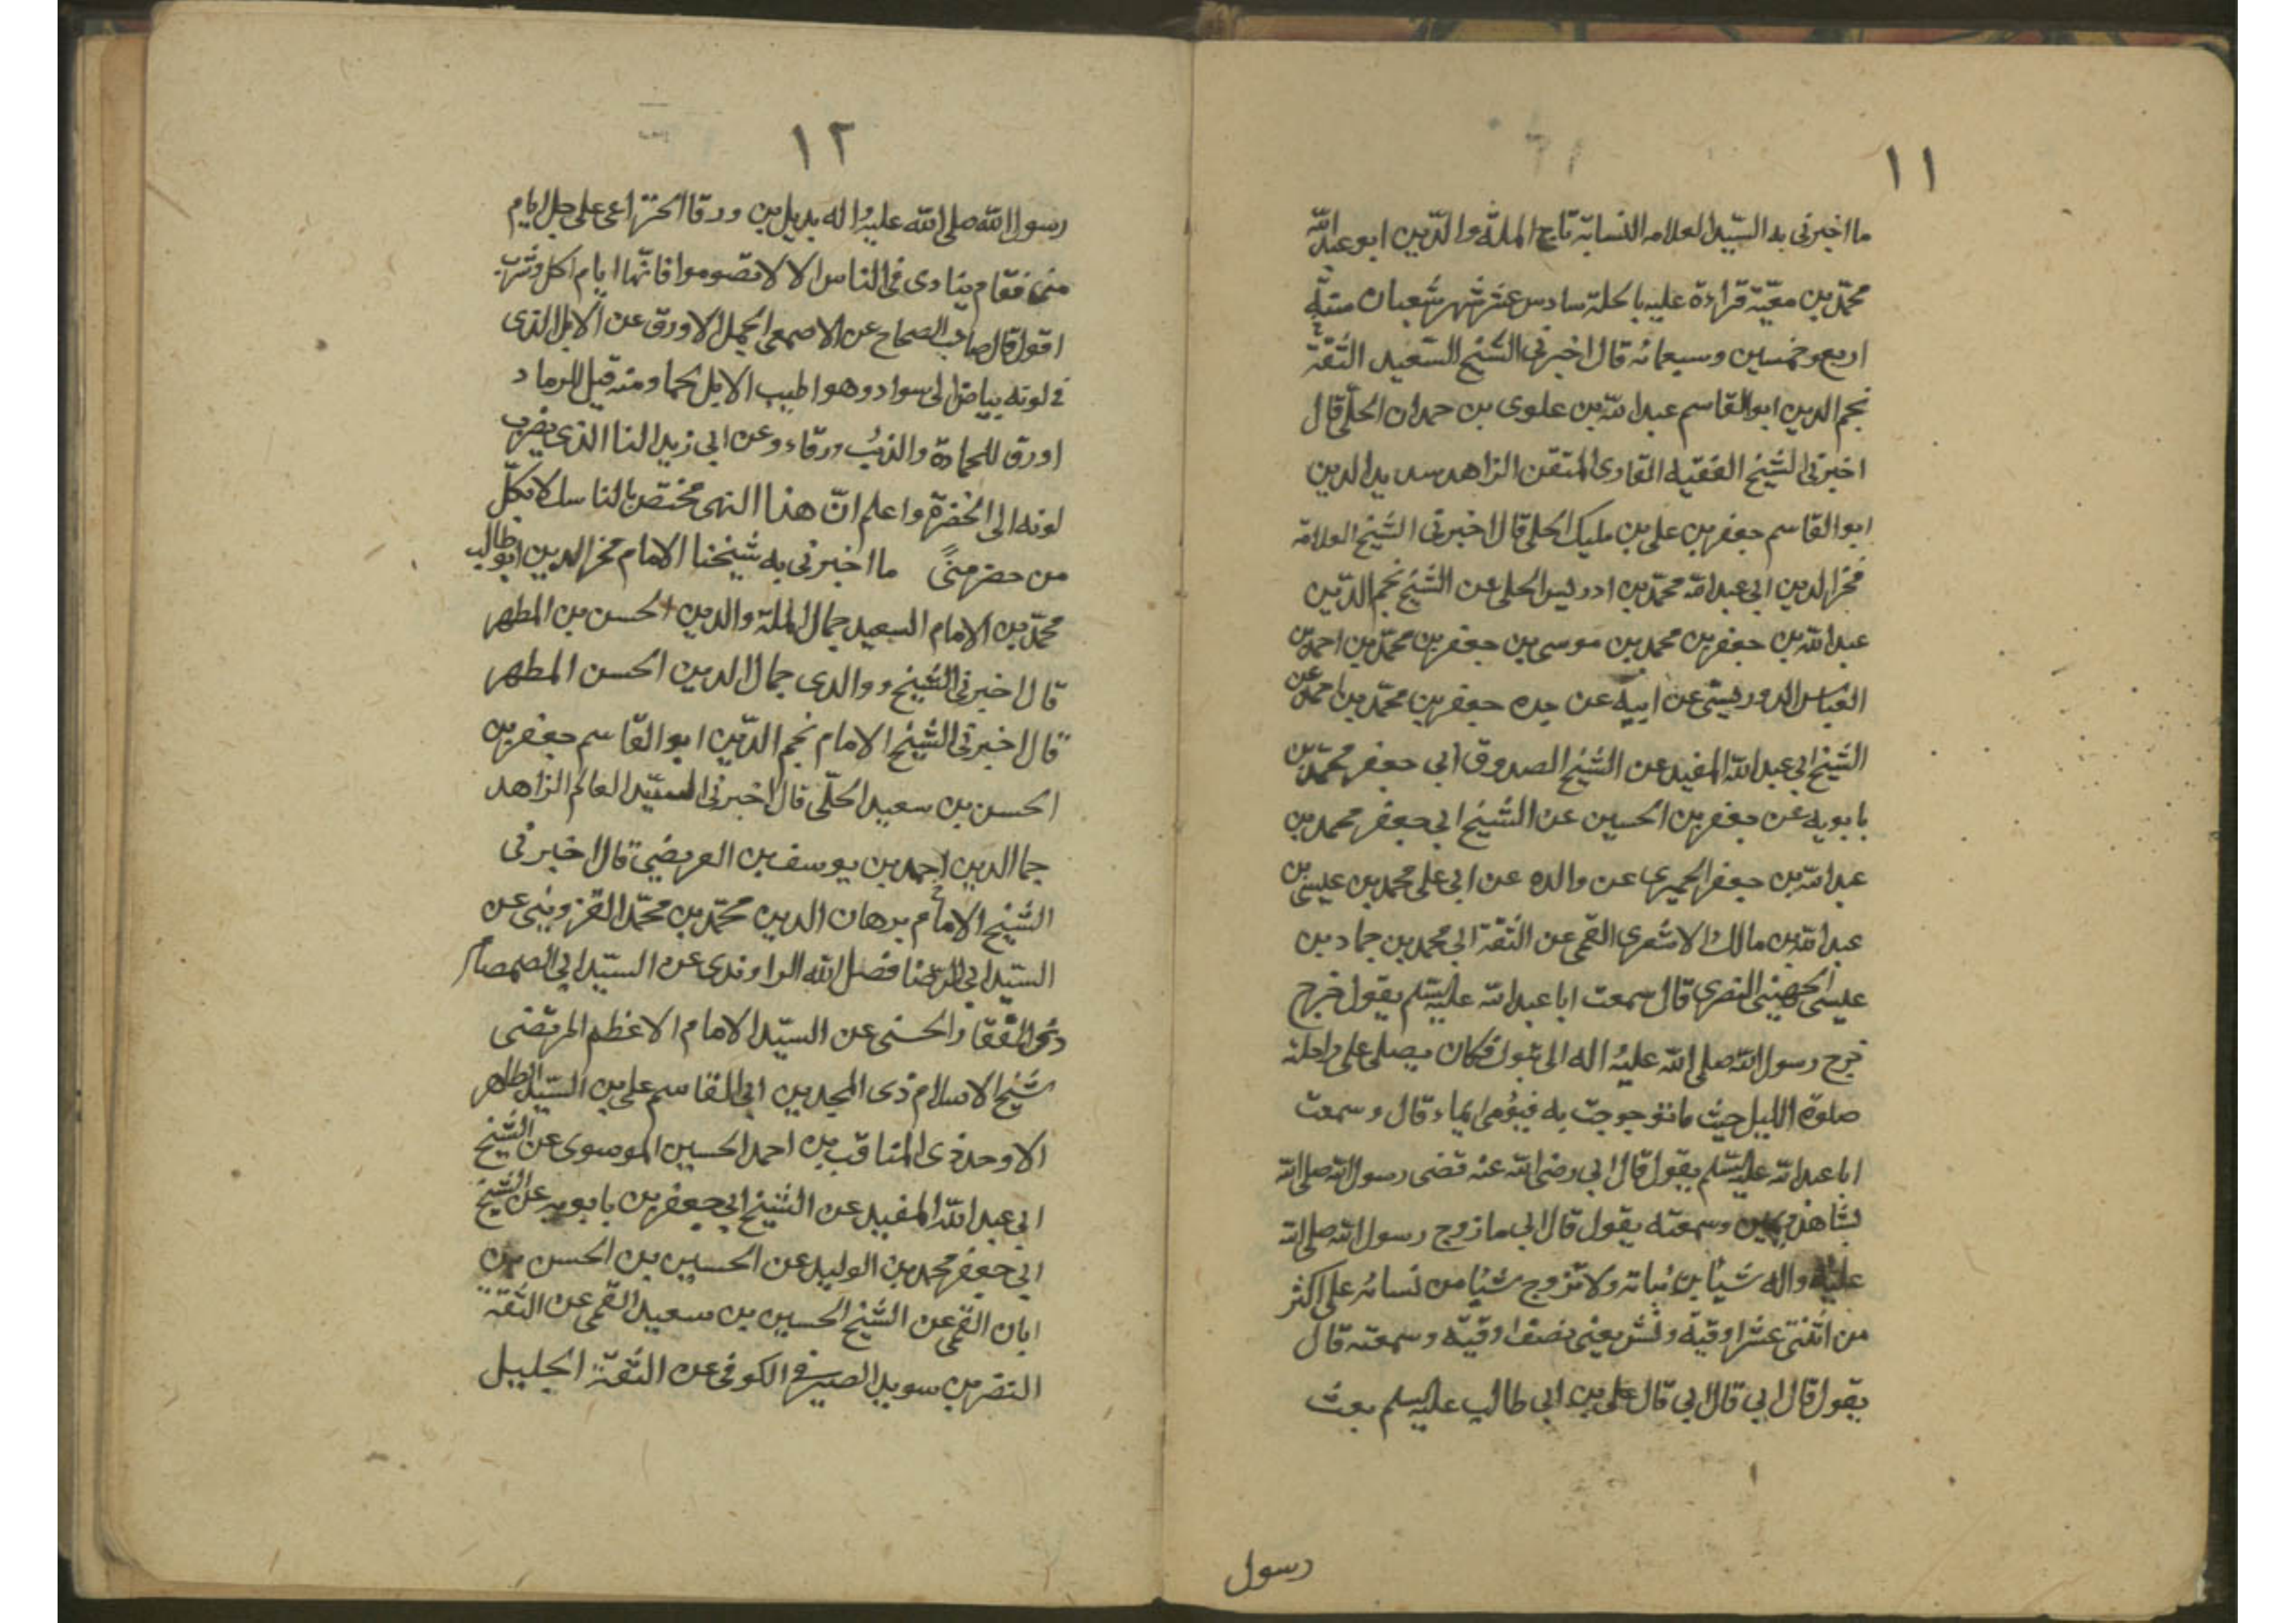 ١١
ما اخبرنى به السّيد العلامه النسابة تاج الملة والدّين ابو عبد الله
محمّد بن معيّة قراءة عليه بالحلة سادس عشر شهر شعبان سنة
اربع وخمسين وسبعمائه قال اخبرنى الشيخ السّعيد الثقة
نجم الدين ابو القاسم عبد الله بن علوى بن حمدان الحلّى قال
اخبرنى الشيخ الفقيه القارى المتقن الزاهد سديد الدين
ابو القاسم جعفر بن على بن مليك الحلى قال اخبرنى الشيخ العلامة
فخر الدين ابى عبد الله محمّد بن ادريس الحلى عن الشيخ نجم الدّين
عبد الله بن جعفر بن محمد بن موسى بن جعفر بن محمّد بن احمد بن
العباس الدوريستى عن ابيه عن جده جعفر بن محمّد بن احمد عن
الشيخ ابى عبد الله المفيد عن الشيخ الصدوق ابى جعفر محمّد بن
بابويه عن جعفر بن الحسين عن الشيخ ابى جعفر محمد بن
عبد الله بن جعفر الحميرى عن والده عن ابى على محمد بن عيسى بن
عبد الله بن مالك الاشعرى القمى عن الثقة ابى محمد بن حماد بن
عيسى الجهينى البصرى قال سمعت ابا عبد الله عليه السّلم يقول خرج
خرج رسول الله صلى الله عليه واله الى تبوك فكان يصلى على راحلته
صلوة الليل حيث ما توجوجت به فيؤمى ايماء قال وسمعت
ابا عبد الله عليه السّلم يقول قال ابى رضى الله عنه قضى رسول الله صلى الله
بشاهد ويمين وسمعته يقول قال ابى ما زوج رسول الله صلى الله
عليه واله شيئا من بناته ولا تزوج شيئا من نسائه على اكثر
من اثنتى عشر اوقية ونش يعنى نصف اوقيّة وسمعته قال
يقول قال ابى قال ابى قال على بن ابى طالب عليه السلم بعث
رسول
١٢
رسول الله صلى الله عليه واله بديل بن ورقا الخزاعى على جمل ايام
منى فقام ينادى فى الناس الا لا تصوموا فانّها ايام اكل وشرب
اقول قال صاحب الصحاح عن الاصمعى الجمل الاورق عن الابل الذى
فى لونه بياض الى سواد وهو اطيب الابل لحما ومنه قيل للرماد
اورق للحمادة والذئب ورقاء وعن ابى زيد النا الذى يضرب
لونه الى الخضرة واعلم انّ هذا النهى مختص بالناسك لا بكلّ
من حضر منىً ما اخبرنى به شيخنا الامام فخر الدين ابو طالب
محمّد بن الامام السعيد جمال الملة والدين الحسن بن المطهر
قال اخبرنى الشيخ و والدى جمال الدين الحسن المطهر
قال اخبرنى الشيخ الامام نجم الدّين ابو القاسم جعفر بن
الحسن بن سعيد الحلّى قال اخبرنى السيّد العالم الزاهد
جما الدين احمد بن يوسف بن العريضى قال اخبرنى
الشيخ الامام برهان الدين محمّد بن محمّد القزوينى عن
السيّد ابى الرضا فضل الله الراوندى عن السيّد ابى الصمصام
ذى الفقار الحسنى عن السيّد الامام الاعظم المرتضى
شيخ الاسلام ذى المجدين ابى القاسم على بن السيّد الطاهر
الاوحد ذى المناقب بن احمد الحسين الموسوى عن الشيخ
ابى عبد الله المفيد عن الشيخ ابى جعفر بن بابويه عن الشيخ
ابى جعفر محمد بن الوليد عن الحسين بن الحسن بن
ابان القمى عن الشيخ الحسين بن سعيد القمى عن الثقة
النضر بن سويد الصيرفى الكوفى عن الثقة الجليل